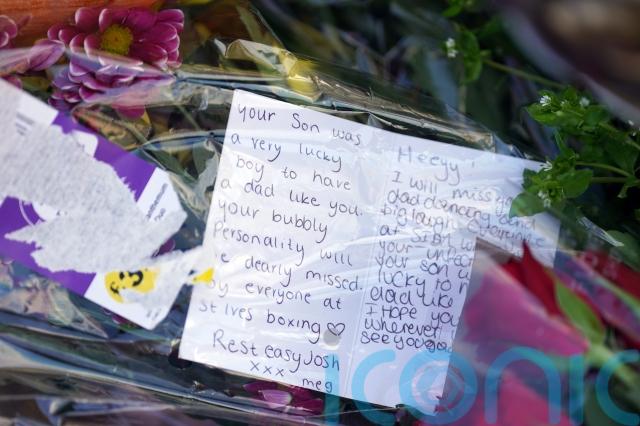 your Son was
a very lucky
boy to have
a dad like you.
your bubbly
Personality will
be dearly missed.
by everyone at
st ives boxing♡
Rest easy Josh
xxx
meg
Heeyy
I will miss
dad dancing and
big laugh
at
your
your son
lucky to
dad like
I Hope you
wherever
see you
iconic